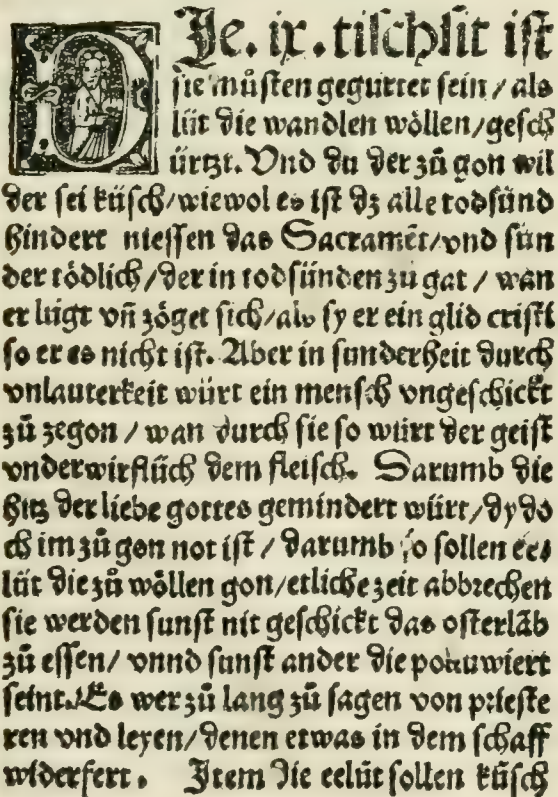 DJe. ix. tischsit ist
sie müsten gegurtet sein / als
lüt die wandlen wöllen / gesch
ürtzt. Vnd du der zů gon wil
der sei küsch / wiewol es ist dz alle todsünd
hindert niessen das Sacramēt / vnd sün
der tödlich / der in todsünden zu gat / wan
er lügt vñ zöget sich / als sy er ein glid cristi
so er es nicht ist. Aber in sunderheit durch
vnlauterkeit würt ein mensch vngeschickt
zů zegon / wan durch sie so würt der geist
vnderwirflüch dem fleisch. Darumb die
hitz der liebe gottes gemindert würt / dy do
ch im zů gon not ist / darumb so sollen ee
lüt die zů wöllen gon / etliche zeit abbrechen
sie werden sunst nit geschickt das osterlāb
zů essen / vnnd sunst ander die
seint. Es wer zů lang zů sagen von prieste
ren vnd leyen / denen etwas in dem schaff
widerfert. Item die eelüt sollen küsch